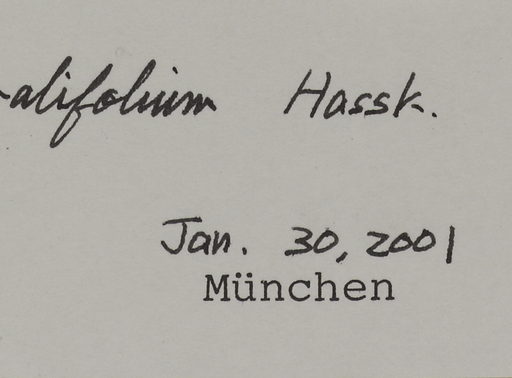 alifolium Hassk.
Jan. 30, 2001
München